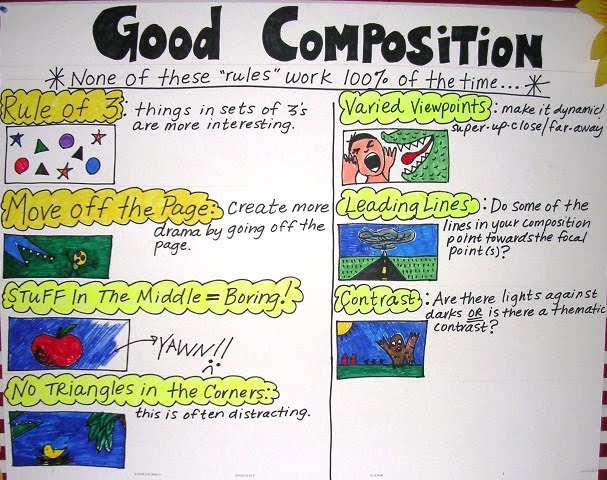 Good Composition
* None of these "rules" work 100% of the time... *
Rule of 3: things in sets of 3's
are more interesting.
Move off the Page: Create more
drama by going off the
page.
Stuff In The Middle = Boring!
YAWN!!
No Triangles in the Corners:
this is often distracting.
Varied Viewpoints: make it dynamic/
super-up-close/far-away
Leading Lines: Do some of the
lines in your composition
point towards the focal
point(s)?
Contrast: Are there lights against
darks OR is there a thematic
contrast?